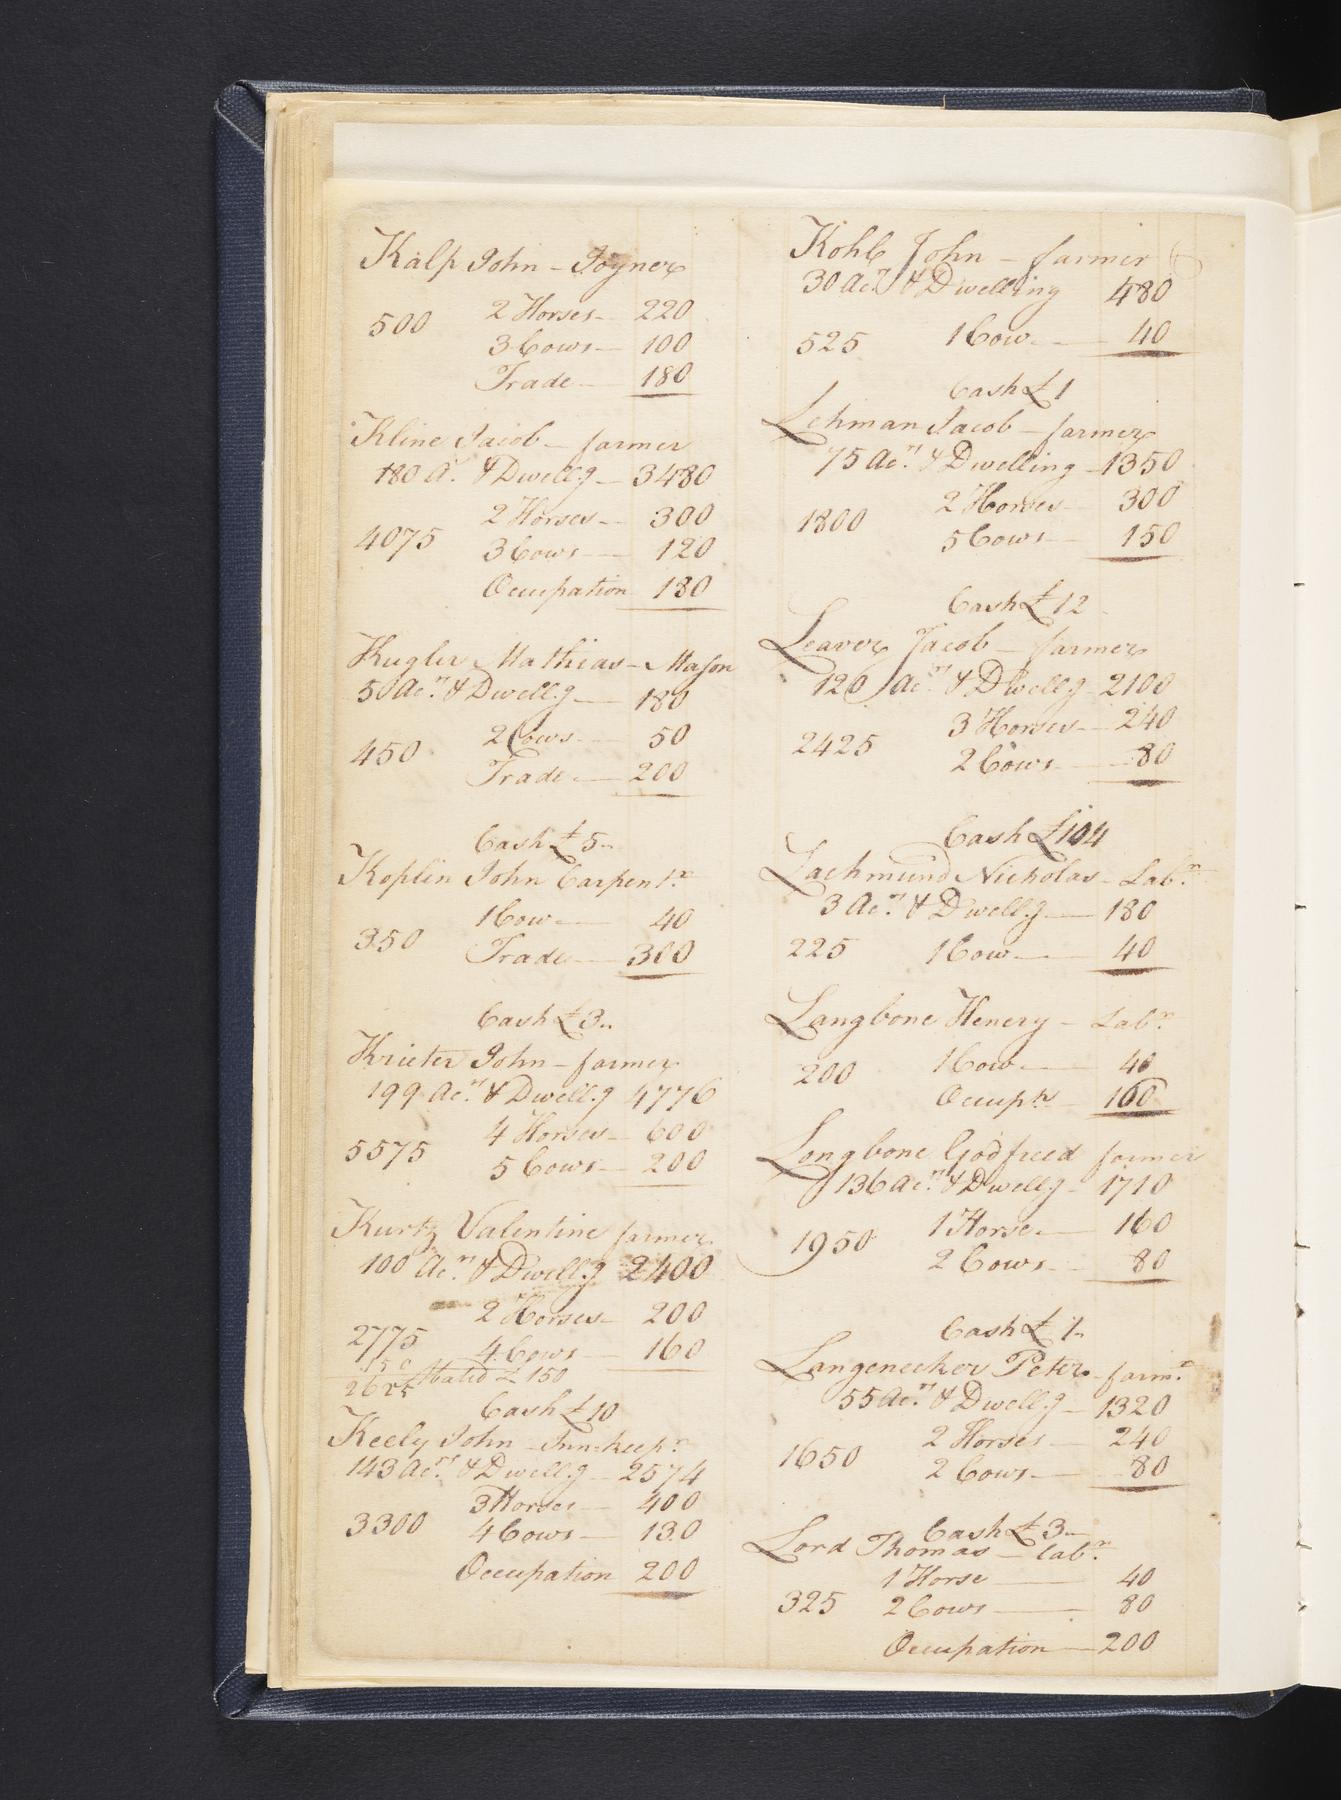 Kalp John - Joyner
2 Horses - 220
500
3 Cows - 100
Trade - 180
Kline Jacob - farmer
180 A. & Dwell.g - 3480
2 Horses - 300
4075
3 Cows - 120
Occupation 180
Kugler Mathias - Mason
50 Acrs. & Dwell.g - 180
2 Cows - 50
450
Trade - 200
Cash £ 5..
Koplin John Carpentr.
1 Cow - 40
350
Trade - 300
Cash £ 3..
Krieter John - farmer
199 Acrs. & Dwell.g 4776
4 Horses - 600
5575
5 Cows - 200
Kurtz Valentine farmer
100 Acrs. & Dwell.g 2400
2 Horses - 200
2775
4 Cows - 160
150
2625 Abated £ 150
Cash £ 10
Keely John - Inn-keepr.
143 Acrs. & Dwell.g - 2574
3 Horses - 400
3300
4 Cows - 130
Occupation 200
Kohl John - farmer
30 Acrs. & Dwelling 480
525 1 Cow - 40
Cash £ 1
Lehman Jacob - farmer
75 Acrs. & Dwelling - 1350
2 Horses - 300
1800
5 Cows - 150
Cash £ 12
Leaver Jacob - farmer
120 Acrs. & Dwell.g - 2100
3 Horses - 240
2425
2 Cows - 80
Cash £ 104
Lachmund Nicholas - Labr.
3 Acrs. & Dwell.g - 180
225 1 Cow - 40
Langbone Henery - Labr.
1 Cow - 40
200
Occupn. - 160
Longbone Godfreed farmer
136 Acrs. & Dwell.g - 1710
1 Horse - 160
1950
2 Cows - 80
Cash £ 1..
Langenecker Peter - farmr.
55 Acrs. & Dwell.g - 1320
2 Horses - 240
1650
2 Cows - 80
Cash £ 3..
Lord Thomas - labr.
1 Horse - 40
325 2 Cows - 80
Occupation - 200